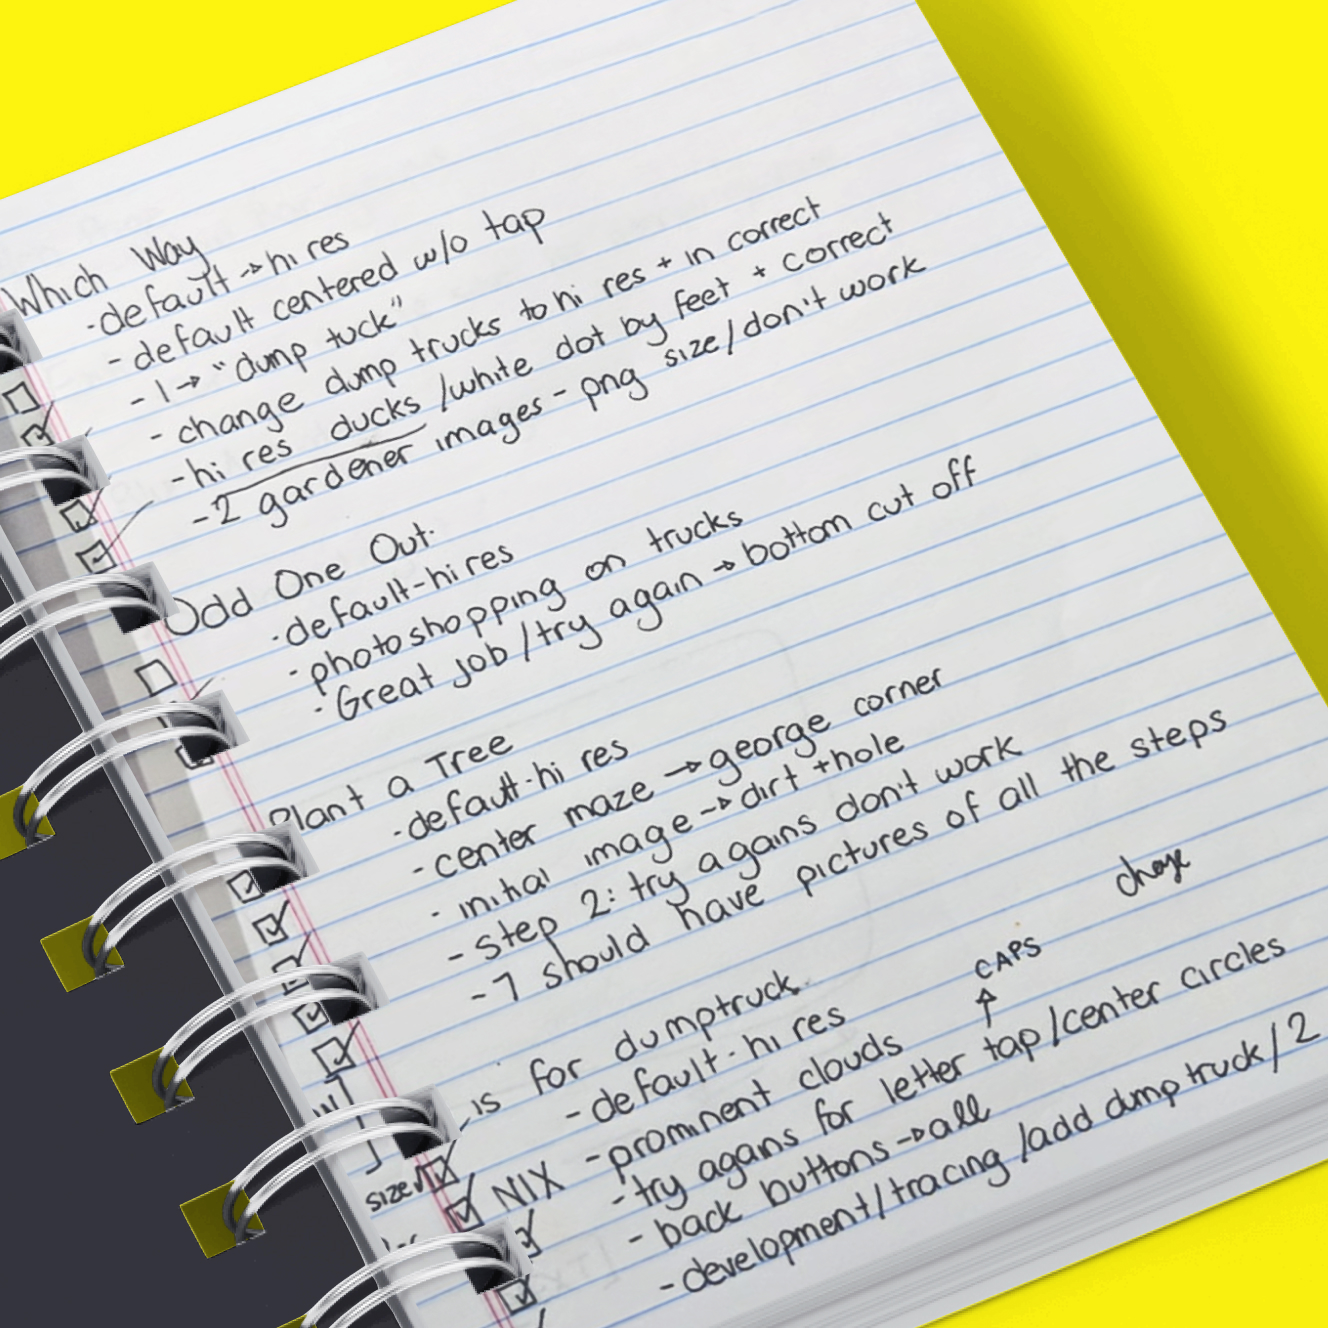 Which Way
-default → hi res
- default centered w/o tap
- 1 → "dump tuck"
- change dump trucks to hi res + in correct
- hi res ducks /white dot by feet + correct
- 2 gardener images - png size / don't work
Odd One Out.
-default-hi res
- photoshopping on trucks
- Great job / try again → bottom cut off
Plant a Tree
-default-hi res
- center maze → george corner
- initial image → dirt + hole
- step 2: try agains don't work
- 7 should have pictures of all the steps
is for dumptruck
- default-hi res
NIX - prominent clouds
CAPS
- try agans for letter tap / center circles
- back buttons → all
- development / tracing / add dump truck / 2
size